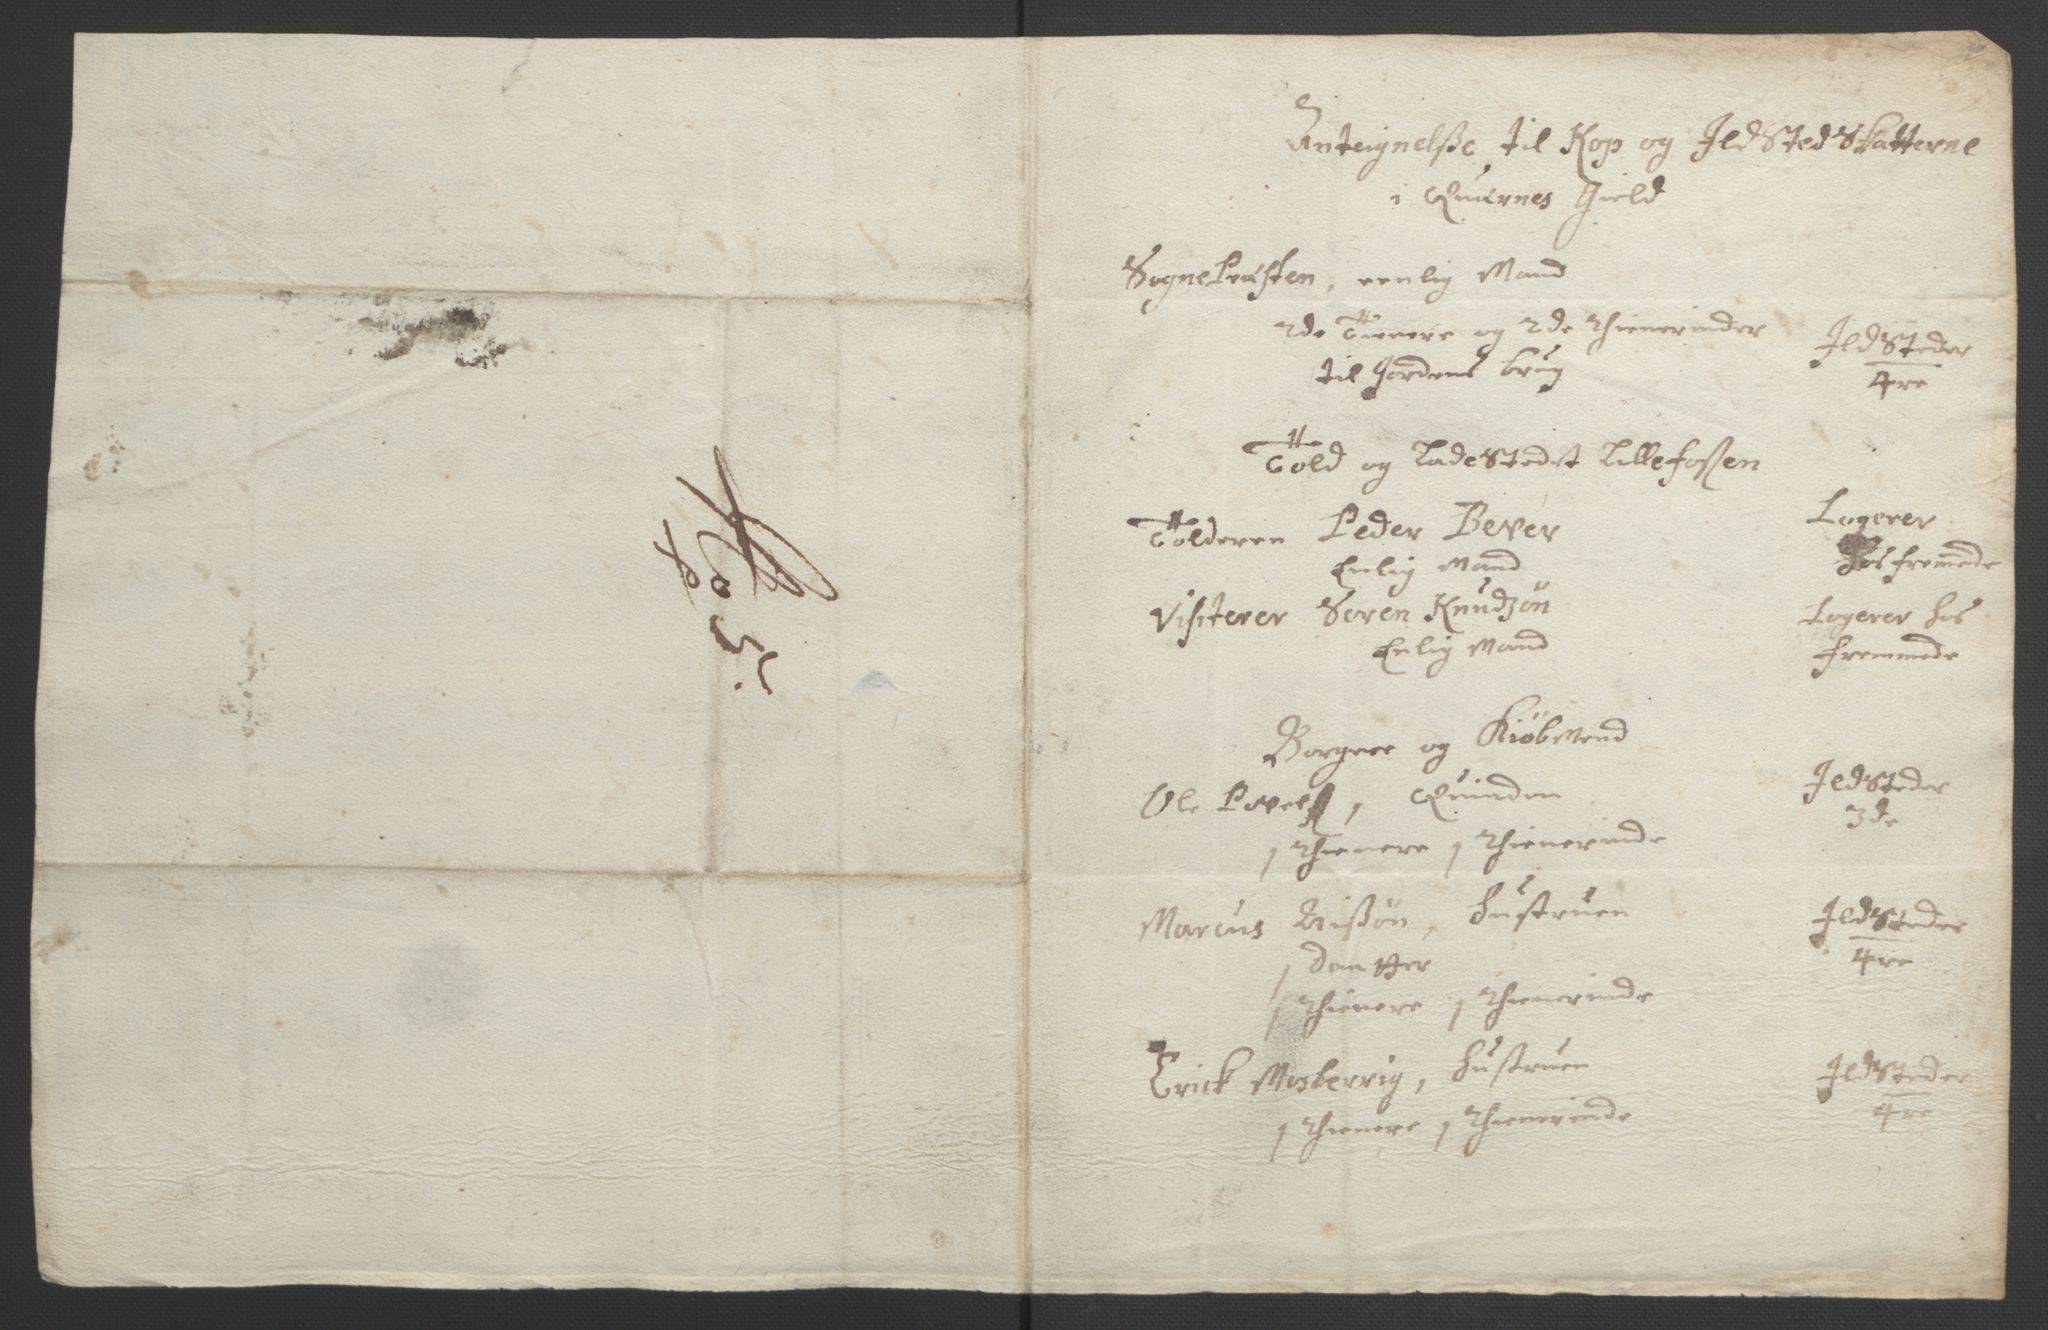 Anteignelsse til Kop og Ildstedskatterne
i Quernes Gield
SognePresten, eenlig Mand
2de Tienere og 2de Thienerinder
til Jordens brug
Ildsteder
4re
Told og Ladestedet Lillefossen
Tolderen Peder Bever
Enlig Mand
Logerer
hos fremede
Visiterer Soren Knudzøn
Enlig Mand
Logerer hos
fremmede
Borgere og Kiöbmend
Ole Povels, Quinden
1 Thienere 1 Thienerinde
Ildsteder
3de
Marcus Nissøn, Hustruen
1 Daatter
1 Thienere 1 Thienerinde
Ildsteder
4re
Erick Mosbervig, Hustruen
1 Thienere 1 Thienerinde
Ildsteder
4re